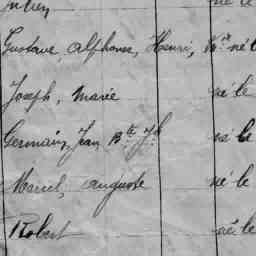 né le
Gustave, Alphonse, Henri, né le
Joseph, Marie né le
Germain, Jean Bte Jh né le
Marcel, Auguste né le
Robert né le